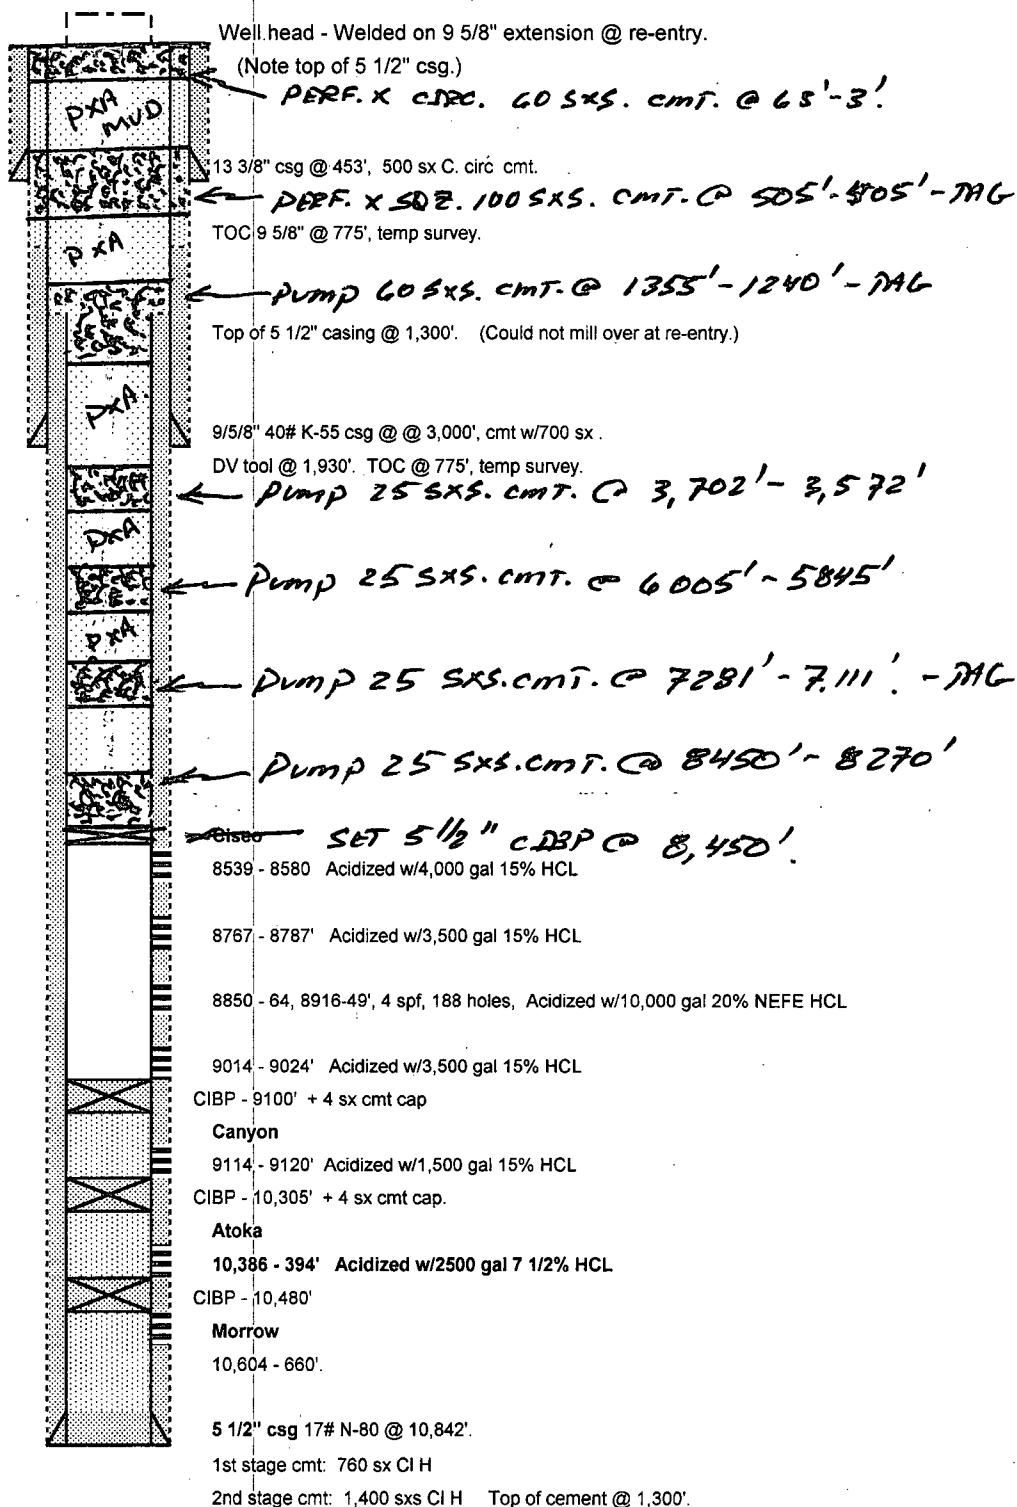 Well head - Welded on 9 5/8" extension @ re-entry.
(Note top of 5 1/2" csg.)
PERF. X CIRC. 60 SXS. CMT. @ 63'-3'.
PXA MUD
13 3/8" csg @ 453', 500 sx C. circ cmt.
PERF. X SQZ. 100 SXS. CMT. @ 505'-405'-TAG
TOC 9 5/8" @ 775', temp survey.
PXA
Pump 60 SXS. CMT. @ 1355'-1240'-TAG
Top of 5 1/2" casing @ 1,300'. (Could not mill over at re-entry.)
PXA
9/5/8" 40# K-55 csg @ @ 3,000', cmt w/700 sx .
DV tool @ 1,930'. TOC @ 775', temp survey.
Pump 25 SXS. CMT. @ 3,702'-3,572'
PXA
Pump 25 SXS. CMT. @ 6005'-5845'
PXA
Pump 25 SXS. CMT. @ 7281'-7,111'. -TAG
Pump 25 SXS. CMT. @ 8450'-8270'
Cisco SET 5 1/2" CIBP @ 8,450'.
8539 - 8580 Acidized w/4,000 gal 15% HCL
8767 - 8787' Acidized w/3,500 gal 15% HCL
8850 - 64, 8916-49', 4 spf, 188 holes, Acidized w/10,000 gal 20% NEFE HCL
9014 - 9024' Acidized w/3,500 gal 15% HCL
CIBP - 9100' + 4 sx cmt cap
Canyon
9114 - 9120' Acidized w/1,500 gal 15% HCL
CIBP - 10,305' + 4 sx cmt cap.
Atoka
10,386 - 394' Acidized w/2500 gal 7 1/2% HCL
CIBP - 10,480'
Morrow
10,604 - 660'.
5 1/2" csg 17# N-80 @ 10,842'.
1st stage cmt: 760 sx Cl H
2nd stage cmt: 1,400 sxs Cl H Top of cement @ 1,300'.